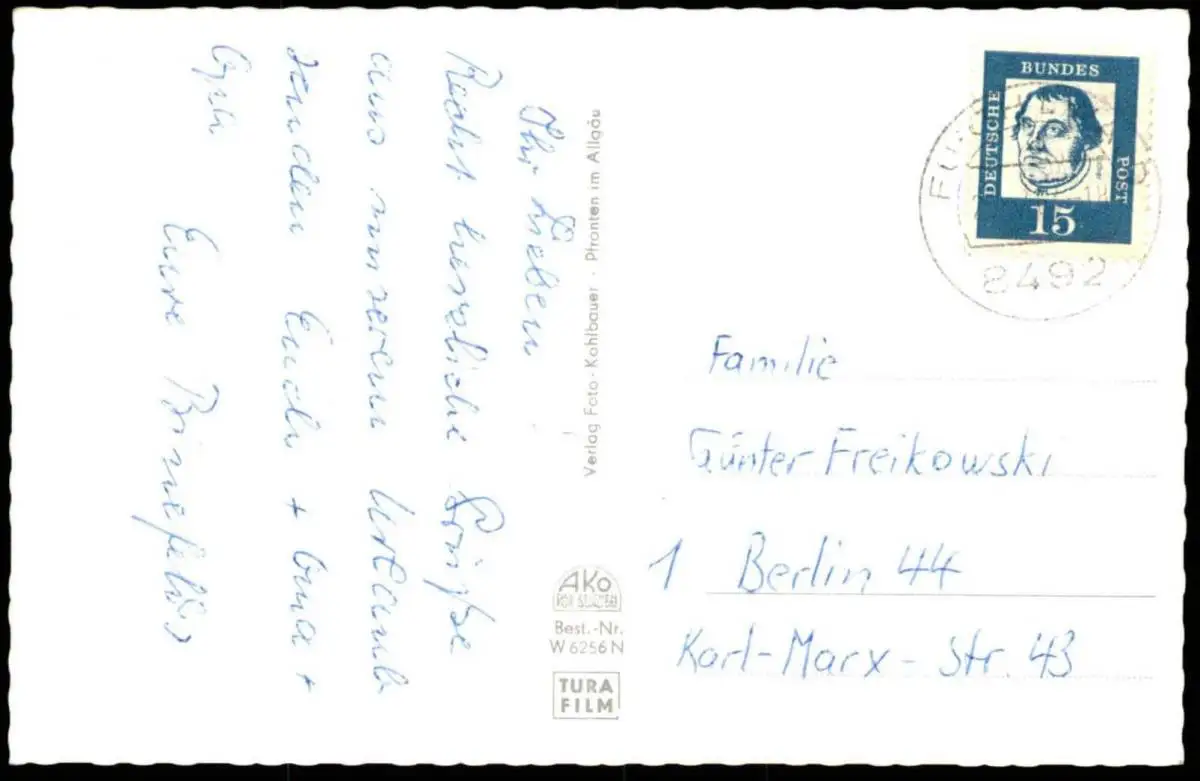 Ihr Lieben
Recht herzliche Grüße
aus unserem Urlaub
senden Euch + Oma +
Opa
Eure
Verlag Foto-Kohlbauer · Pfronten im Allgäu
AKO
Best.-Nr.
W 6256 N
TURA
FILM
DEUTSCHE
BUNDES
POST
15
8492
Familie
Günter Freikowski
1 Berlin 44
Karl-Marx-Str. 43